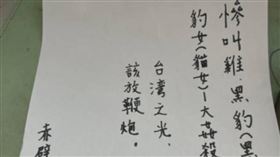 慘叫雞.黑豹(黑
豹女(貓女)-大女殺
台灣之光,
該放鞭炮。
赤壁